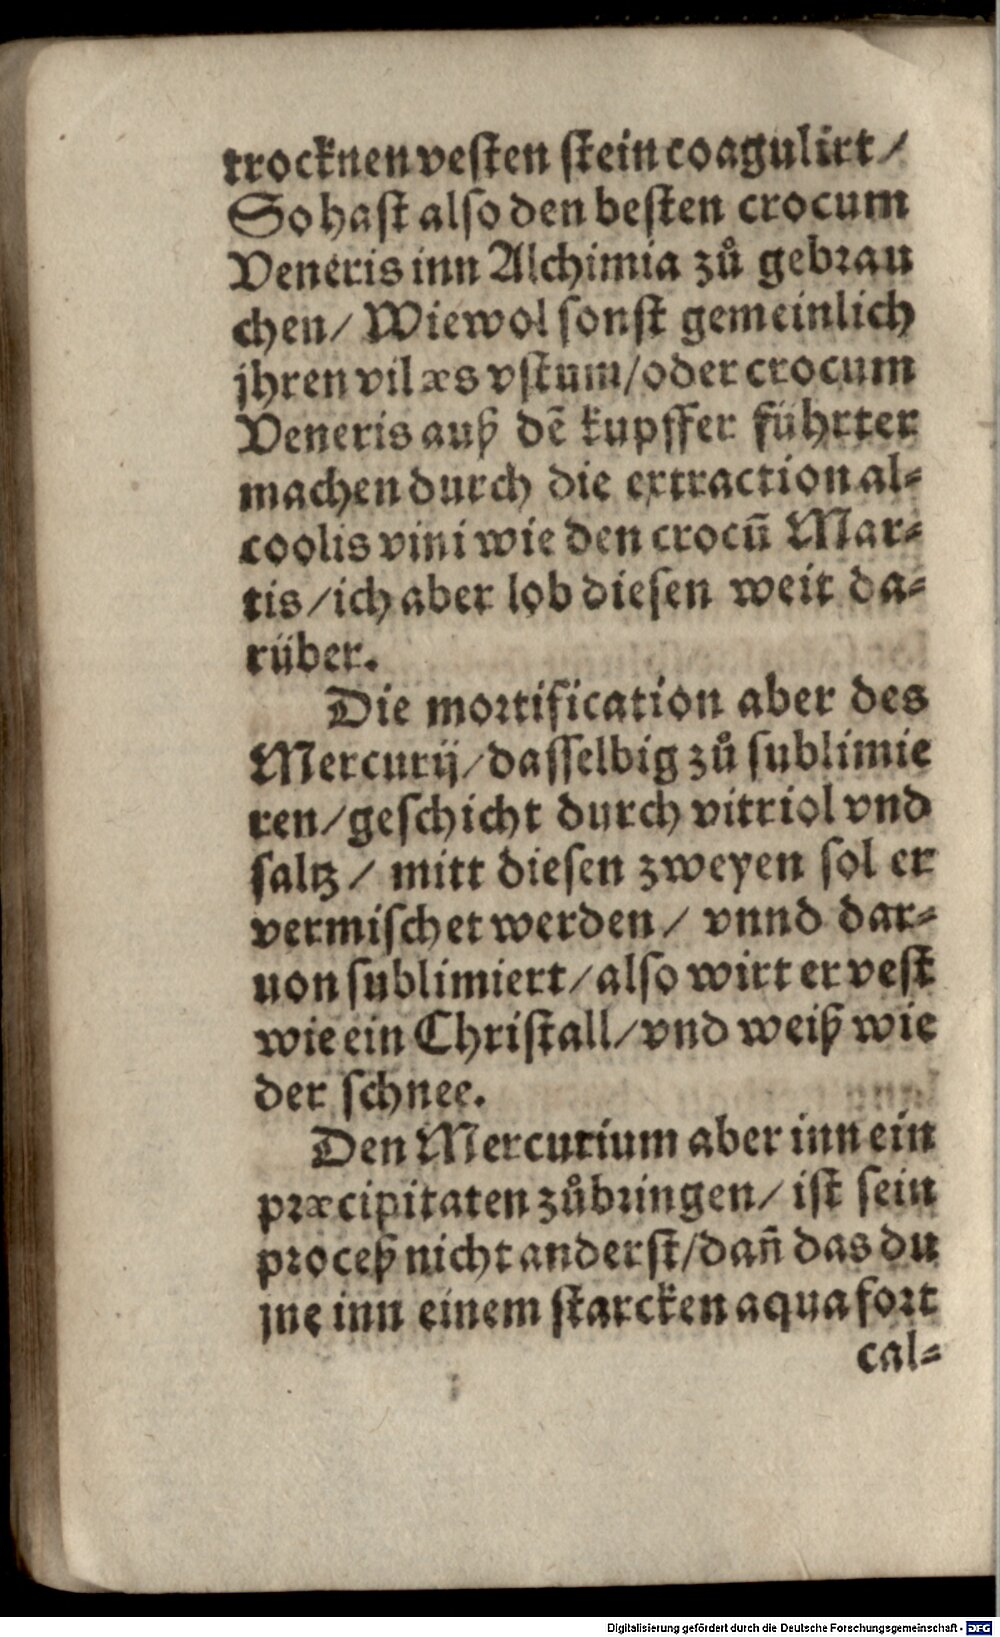 trocknen vesten stein coagulirt /
So hast also den besten crocum
Veneris inn Alchimia zů gebrau
chen / Wiewol sonst gemeinlich
jhren vil æs vstum / oder crocum
Veneris auß dē kupffer führter
machen durch die extraction al⸗
coolis vini wie den crocū Mar⸗
tis / ich aber lob diesen weit da⸗
rüber.
Die mortification aber des
Mercurij / dasselbig zů sublimie
ren / geschicht durch vitriol vnd
saltz / mitt diesen zweyen sol er
vermischet werden / vnnd dar⸗
uon sublimiert / also wirt er vest
wie ein Christall / vnd weiß wie
der schnee.
Den Mercurium aber inn ein
præcipitaten zůbringen / ist sein
proceß nicht anderst / dañ das du
jne inn einem starcken aqua fort
cal⸗
Digitalisierung gefördert durch die Deutsche Forschungsgemeinschaft - DFG